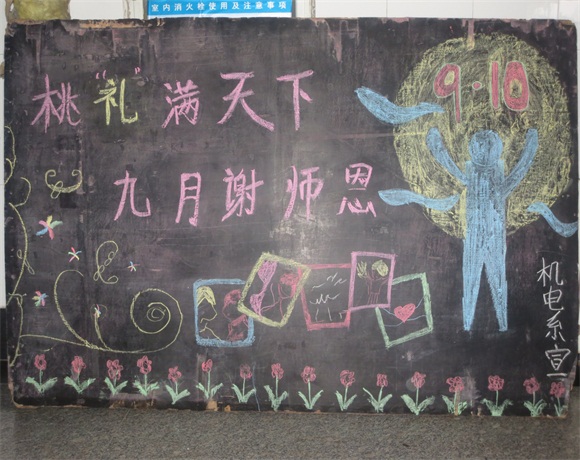 室内消火栓使用及注意事项
桃“礼”满天下
9·10
九月谢师恩
机电系宣